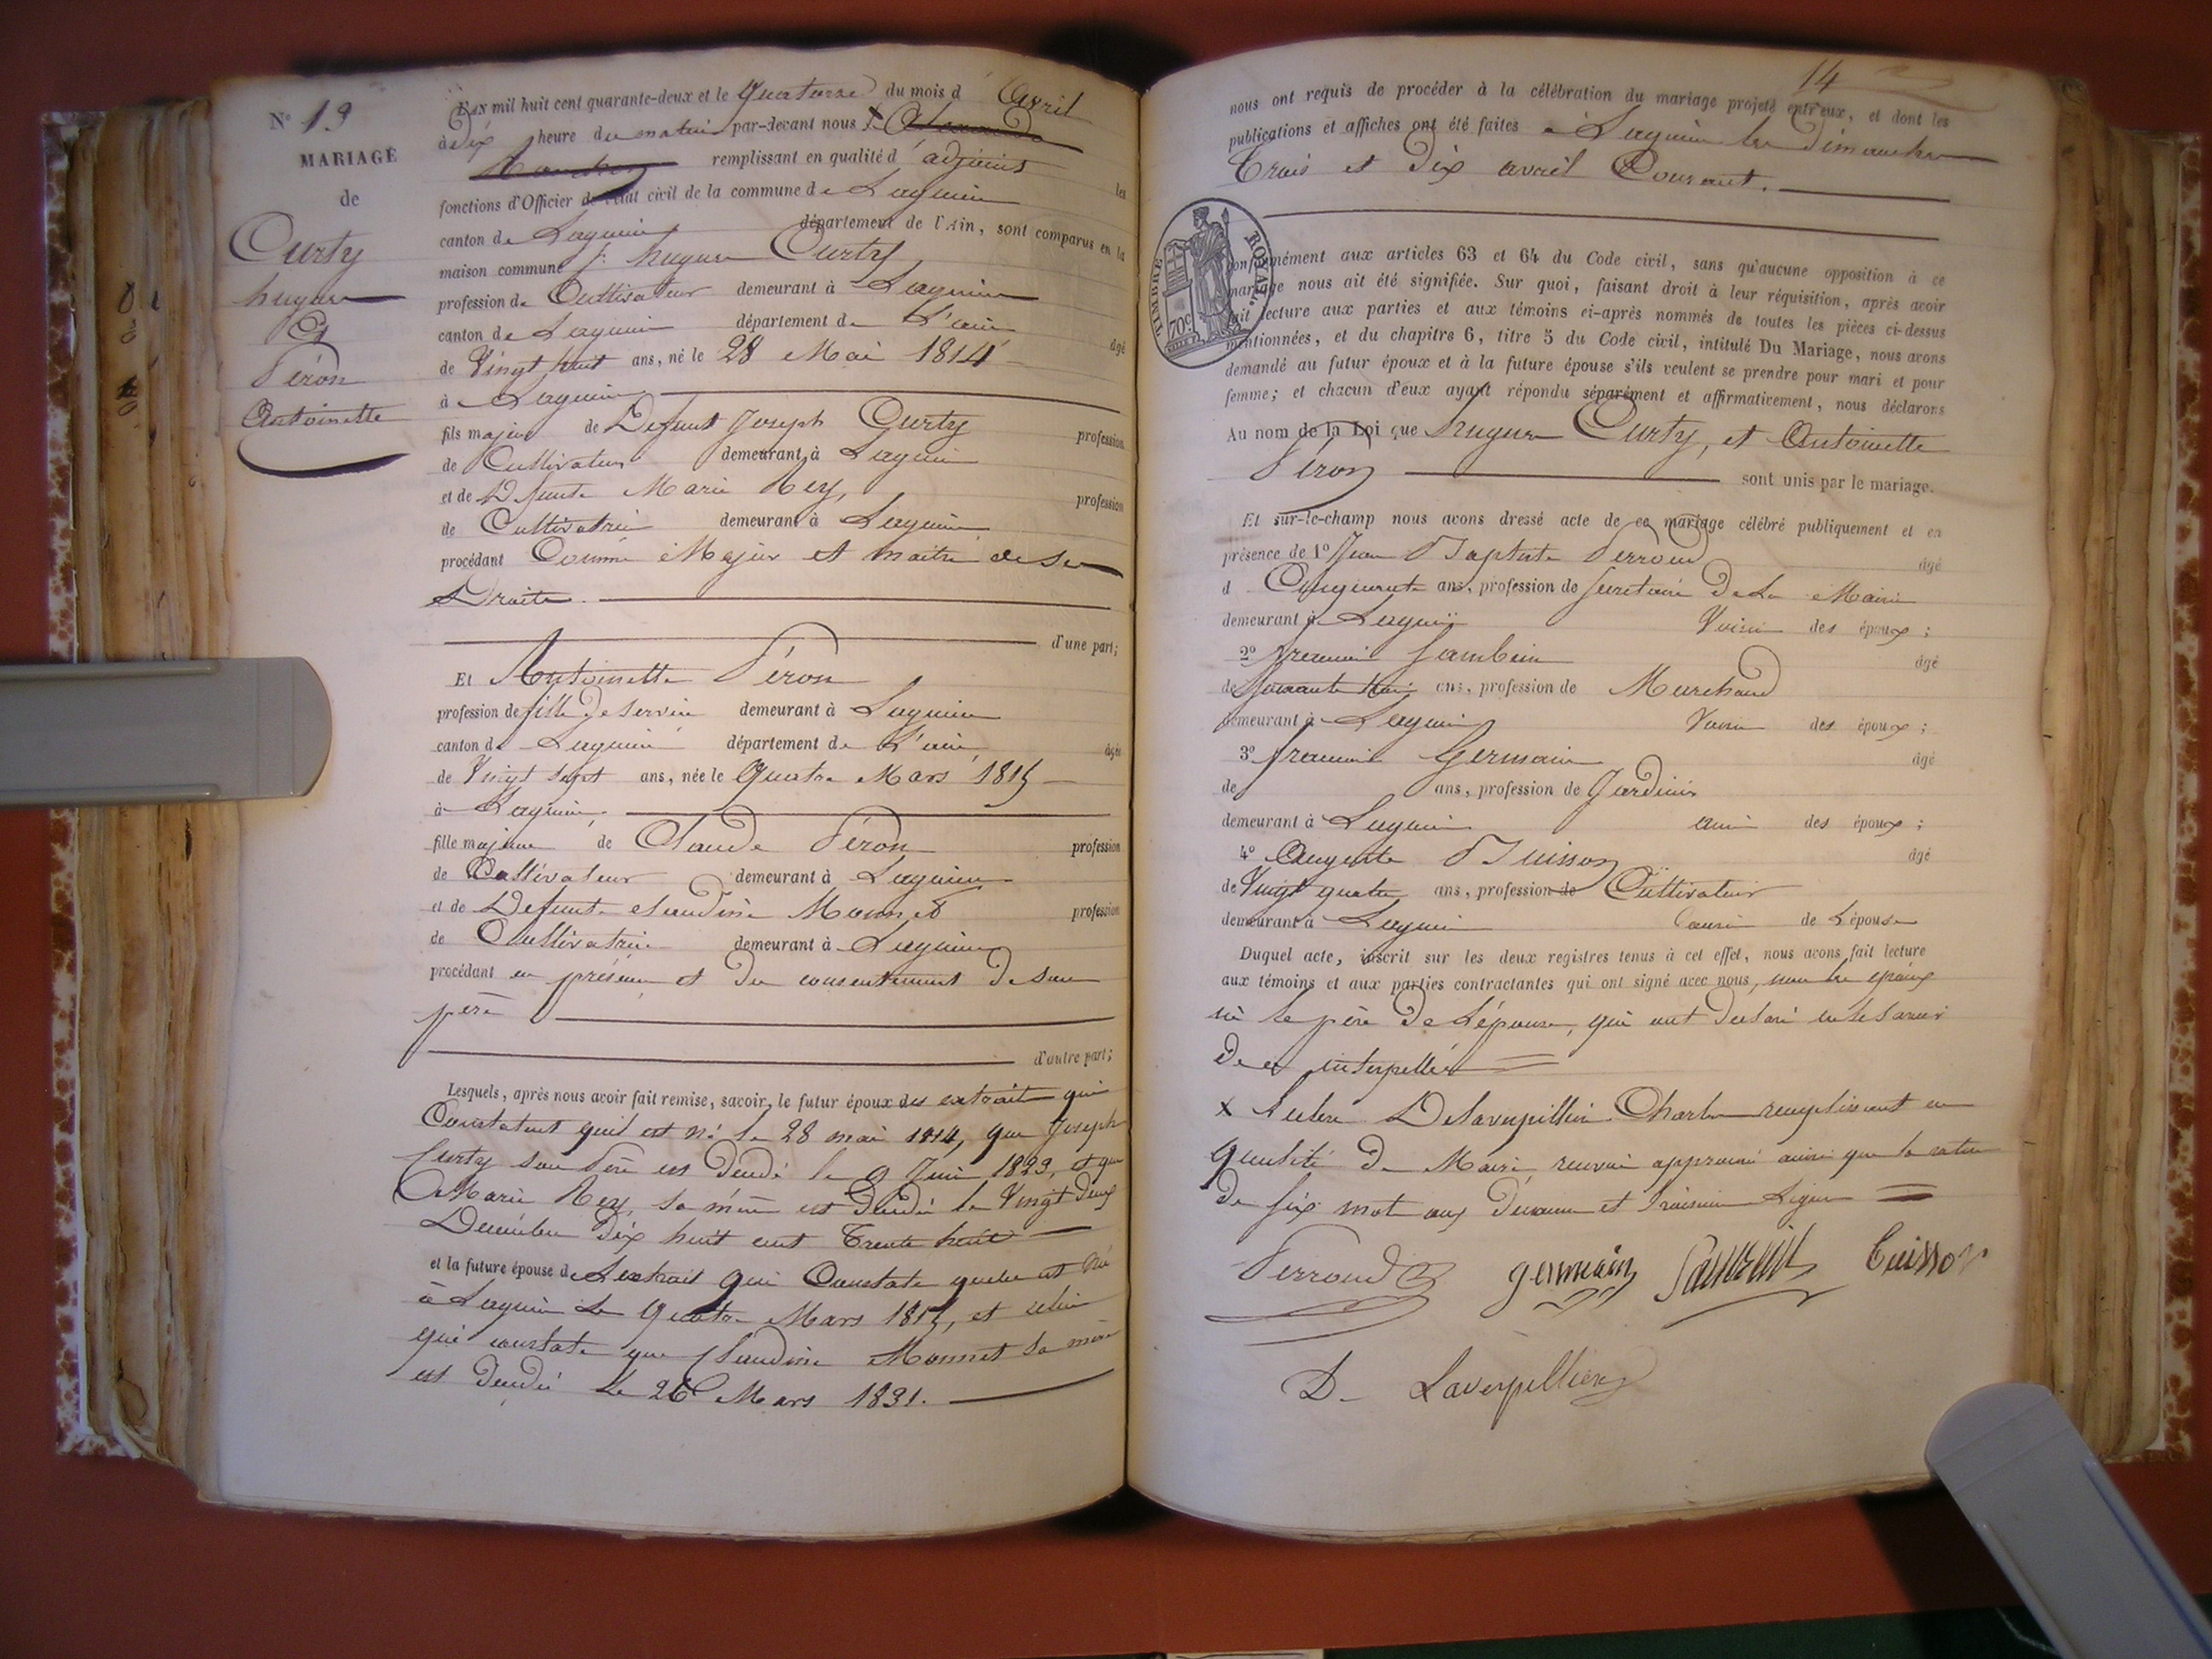 N° 13
MARIAGE
de
Curty
hugues
Et
Péron
Antoinette
L'AN mil huit cent quarante-deux et le Quatorze du mois d'Avril
à Dix heure du matin par-devant nous x
remplissant en qualité d'adjoint les
fonctions d'Officier de l'état civil de la commune de Lagnieu
canton de Lagnieu département de l'Ain, sont comparus en la
maison commune 1° hugues Curty
profession de Cultivateur demeurant à Lagnieu
canton de Lagnieu département de L'ain âgé
de Vingt huit ans, né le 28 Mai 1814
à Lagnieu
fils majeur de Defunt Joseph Curty profession
de Cultivateur demeurant à Lagnieu
et de Defunte Marie Rey, profession
de Cultivatrice demeurant à Lagnieu
procédant Comme Majeur et maitre de ses
Droits.
d'une part;
Et Antoinette Péron
profession de fille de Service demeurant à Lagnieu
canton de Lagnieu département de L'ain âgée
de Vingt Sept ans, née le Quatre Mars 1815
à Lagnieu.
fille majeure de Claude Péron profession
de Cultivateur demeurant à Lagnieu
et de Defunte Claudine Monnet profession
de Cultivatrice demeurant à Lagnieu
procédant en présence et du consentement de son
père
d'autre part;
Lesquels, après nous avoir fait remise, savoir, le futur époux des extraits qui
Constatent quil est né le 28 mai 1814, que Joseph
Curty son Père est Décédé le 9 Juin 1823, et que
Marie Rey, sa mère est Décédée le Vingt Deux
Decembre Dix huit cent Trente huit
et la future épouse de Lextrait qui Constate quelle est née
à Lagnieu Le Quatre Mars 1815, et celui
qui constate que Claudine Monnet sa mère
est Decedée Le 26 Mars 1831.
14
nous ont requis de procéder à la célébration du mariage projeté entr'eux, et dont les
publications et affiches ont été faites à Lagnieu les Dimanches
Trois et Dix avril Courant.
TIMBRE ROYAL
70c
conformément aux articles 63 et 64 du Code civil, sans qu'aucune opposition à ce
mariage nous ait été signifiée. Sur quoi, faisant droit à leur réquisition, après avoir
fait lecture aux parties et aux témoins ci-après nommés de toutes les pièces ci-dessus
mentionnées, et du chapitre 6, titre 5 du Code civil, intitulé Du Mariage, nous avons
demandé au futur époux et à la future épouse s'ils veulent se prendre pour mari et pour
femme; et chacun d'eux ayant répondu séparément et affirmativement, nous déclarons
Au nom de la Loi que hugues Curty, et Antoinette
Péron sont unis par le mariage.
Et sur-le-champ nous avons dressé acte de ce mariage célébré publiquement et en
présence de 1° Jean Baptiste Perroud âgé
d Cinquante ans, profession de Secretaire De La Mairie
demeurant à Lagnieu Voisin des époux;
2° âgé
de ans, profession de Marchand
demeurant à Lagnieu Voisin des époux;
3° Germain âgé
de ans, profession de Jardinier
demeurant à Lagnieu ami des époux;
4° Auguste Buisson âgé
de Vingt quatre ans, profession de Cultivateur
demeurant à Lagnieu Cousin de L'épouse
Duquel acte, inscrit sur les deux registres tenus à cet effet, nous avons fait lecture
aux témoins et aux parties contractantes qui ont signé avec nous, non les époux
ni le père De L'épouse, qui ont Déclaré ne le Savoir
De ce interpellés
x Delaverpillière Charles remplissant en
qualité De Maire renvoi approuvé ainsi que la rature
De Six mots aux Deuxieme et Troisieme Lignes
Perroud Germain Buisson
D. Laverpilliere